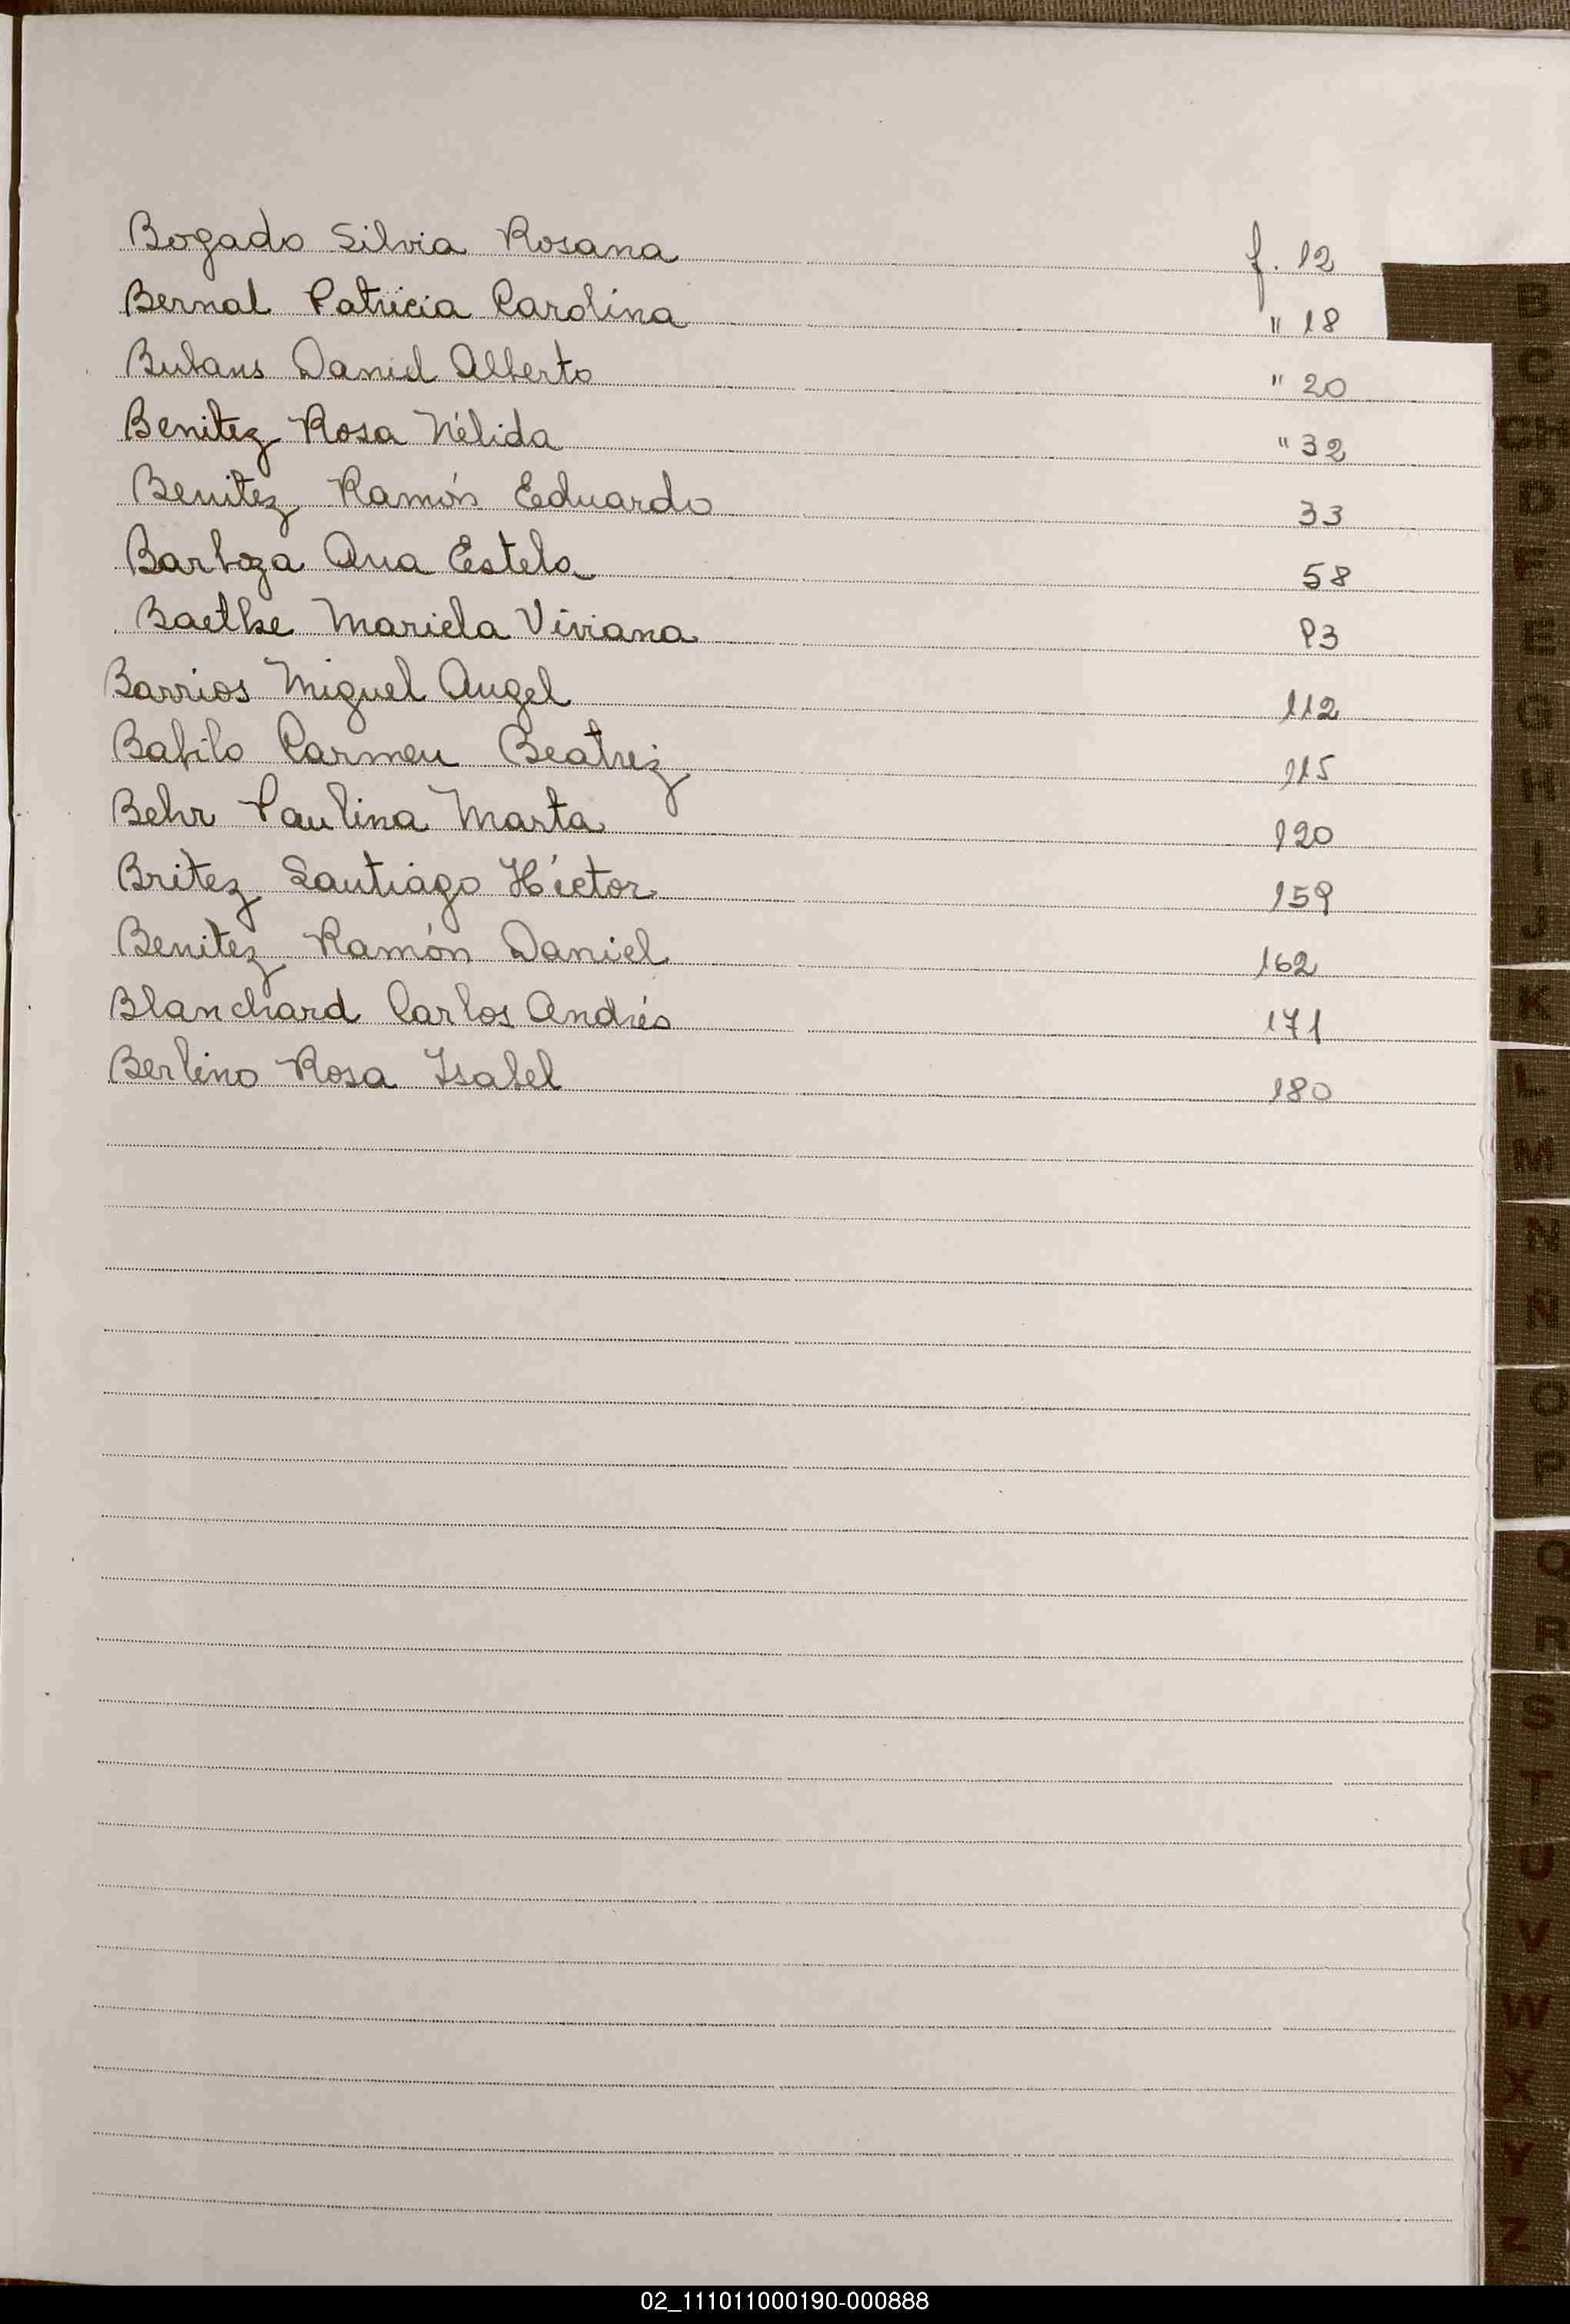 Bogado Silvia Rosana f. 12
Bernal Patricia Carolina " 18
Butaus Daniel Alberto " 20
Benitez Rosa Nélida " 32
Benitez Ramón Eduardo 33
Barboza Ana Estela 58
Baethe Mariela Viviana 93
Barrios Miguel Angel 112
Carmen Beatriz 115
Behr Paulina Marta 120
Britez Santiago Héctor 159
Benitez Ramón Daniel 162
Blanchard Carlos Andrés 171
Berlino Rosa Isabel 180
B
C
CH
D
F
E
G
H
I
J
K
L
M
N
N
O
P
Q
R
S
T
U
V
W
X
Y
Z
02_111011000190-000888